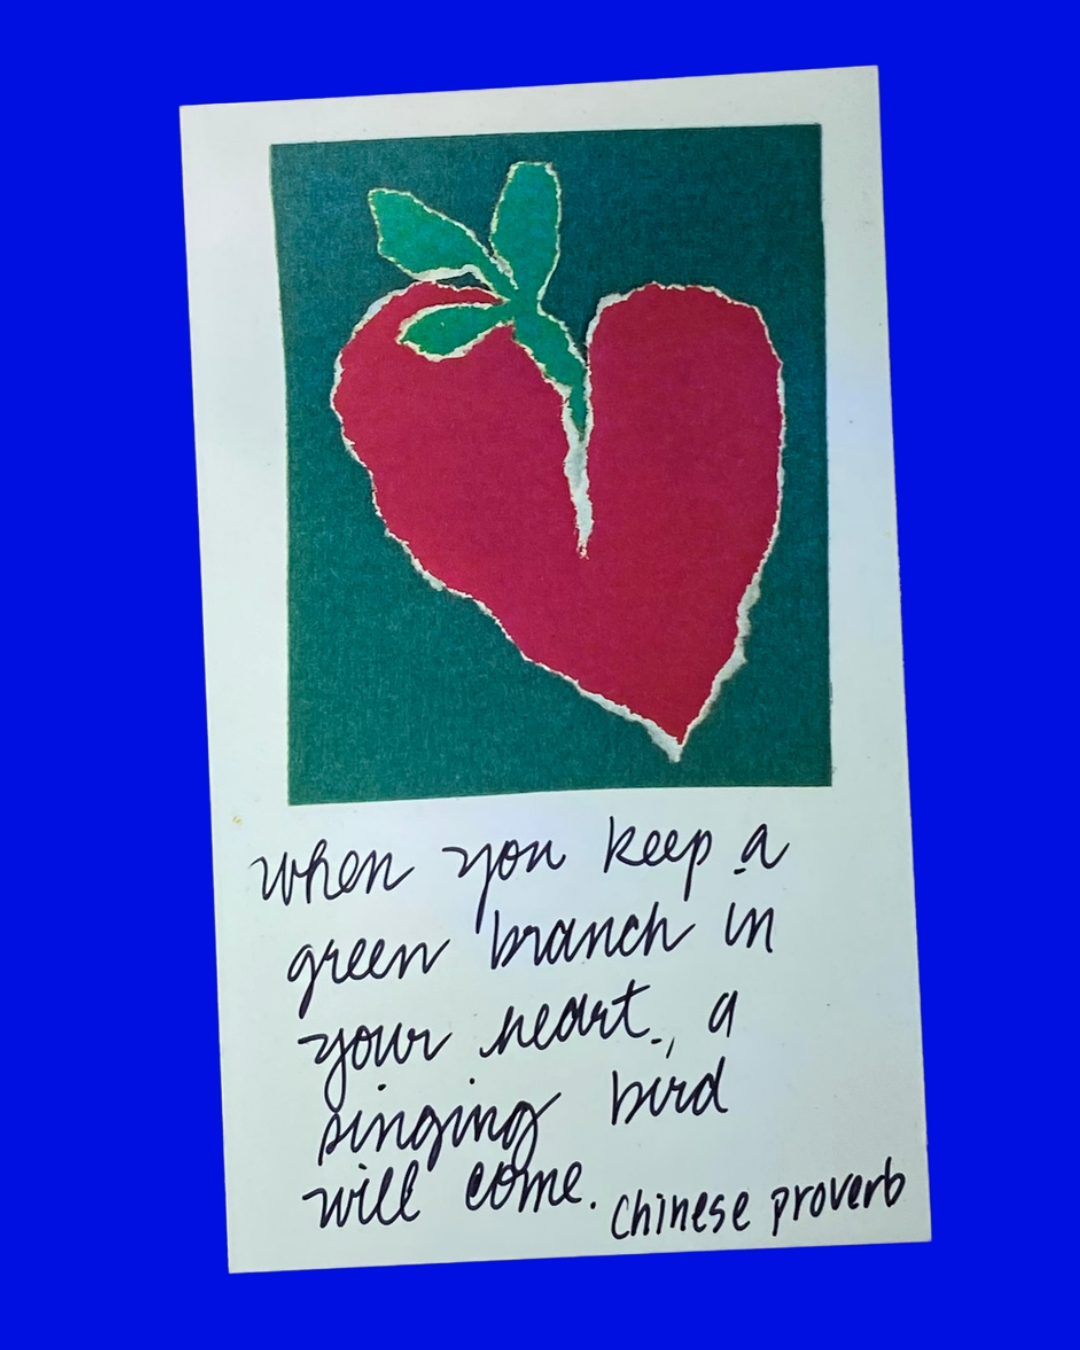 when you keep a
green branch in
your heart, a
singing bird
will come.
chinese proverb